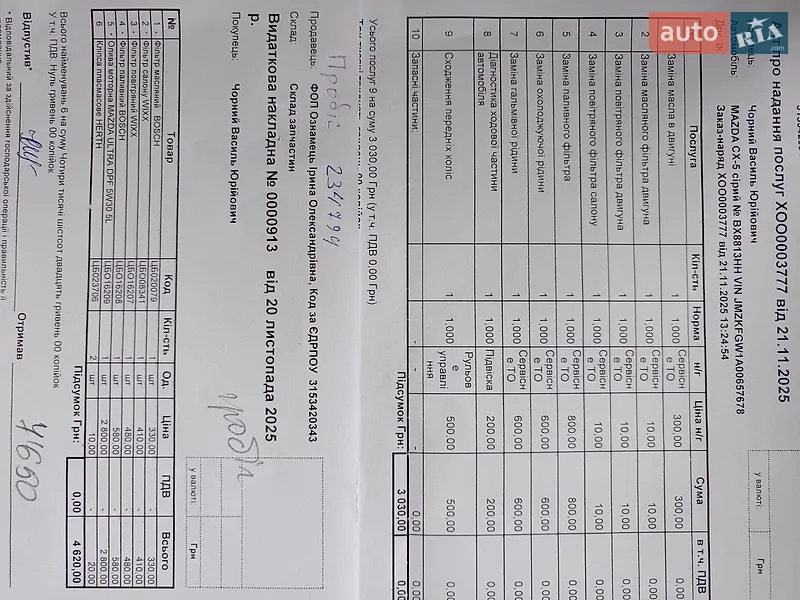 auto RIA.com
про надання послуг ХОО0003777 від 21.11.2025
Чорний Василь Юрійович
Автомобіль: MAZDA CX-5 сірий № BX8813HH VIN JMZKFGW1A00657678
Заказ-наряд ХОО0003777 від 21.11.2025 13:24:54
у валюті: Грн
Послуга Кіл-сть Норма н/г Ціна н/г Сума в т.ч. ПДВ
Заміна масла в двигуні 1 1,000 Сервісне ТО 300,00 300,00 0,00
2 Заміна масляного фільтра двигуна 1 1,000 Сервісне ТО 10,00 10,00 0,00
3 Заміна повітряного фільтра двигуна 1 1,000 Сервісне ТО 10,00 10,00 0,00
4 Заміна повтраного фільтра салону 1 1,000 Сервісне ТО 10,00 10,00 0,00
5 Заміна паливного фільтра 1 1,000 Сервісне ТО 800,00 800,00 0,00
6 Заміна охолоджуючої рідини 1 1,000 Сервісне ТО 600,00 600,00 0,00
7 Заміна гальмівної рідини 1 1,000 Сервісне ТО 600,00 600,00 0,00
8 Діагностика ходової частини автомобіля 1 1,000 Підвіска 200,00 200,00 0,00
9 Сходження передніх коліс 1 1,000 Рульове управління 500,00 500,00 0,00
10 Запасні частини: - - - - 0,00
Підсумок Грн: 3 030,00 0,00
Усього послуг 9 на суму 3 030,00 Грн (у т.ч. ПДВ 0,00 Грн)
Пробіг 234794
Продавець: ФОП Ознамець Ірина Олександрівна, Код за ЄДРПОУ 3153420343
Склад: Склад запчастин
Видаткова накладна № 0000913 від 20 листопада 2025
р.
Покупець: Чорний Василь Юрійович
пробіг
у валюті: Грн
№ Товар Код Кіл-сть Од. Ціна ПДВ Всього
1 Фільтр масляний BOSCH ЦБ020079 1 шт 330,00 - 330,00
2 Фільтр салону WIXX ЦБО08341 1 шт 410,00 - 410,00
3 Фільтр повітряний WIXX ЦБО16207 1 шт 480,00 - 480,00
4 Фільтр паливний BOSCH ЦБО16208 1 шт 580,00 - 580,00
5 Олива моторна MAZDA ULTRA DPF 5W30 5L ЦБО16209 1 шт 2 800,00 - 2 800,00
6 Кліпса пласмасове HERTH ЦБ023706 2 шт 10,00 - 20,00
Підсумок Грн: 0,00 4 620,00
Всього найменувань 6 на суму Чотири тисячі шістсот двадцять гривень 00 копійок
У т.ч. ПДВ: Нуль гривень 00 копійок
Відпустив* Отримав 7650
* Відповідальний за здійснення господарської операції і правильність її